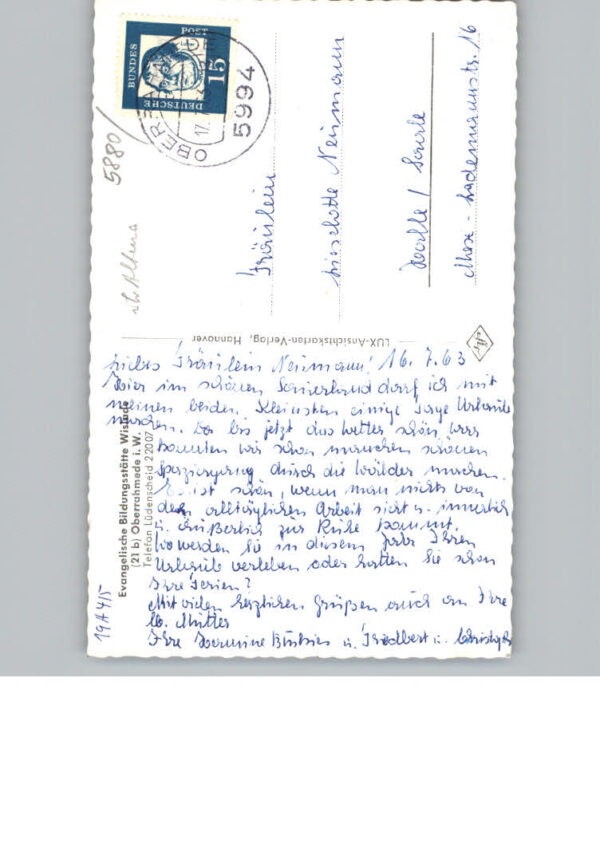 DEUTSCHE
BUNDES
POST
15
17.7.63
5994
5880/
Altena
Fräulein
Lieselotte Neumann
Halle / Saale
Max-Lademannstr. 16
LUX-Ansichtskarten-Verlag, Hannover
Liebes Fräulein Neumann! 16. 7. 63
Hier im schönen Sauerland darf ich mit
meinen beiden Kleinsten einige Tage Urlaub
machen. Da bis jetzt das Wetter schön war
konnten wir schon manchen schönen
Spaziergang durch die Wälder machen.
Es ist schön, wenn man nichts von
der alltäglichen Arbeit sieht u. innerlich
u. äußerlich zur Ruhe kommt.
Wo werden Sie in diesem Jahr Ihren
Urlaub verleben oder hatten Sie schon
Ihre Ferien?
Mit vielen herzlichen Grüßen auch an Ihre
lb. Mutter
Ihre Hermine u. Friedbert u.
Evangelische Bildungsstätte Wislade
(21 b) Oberrahmede i. W.
Telefon Lüdenscheid 22007
19A4/5